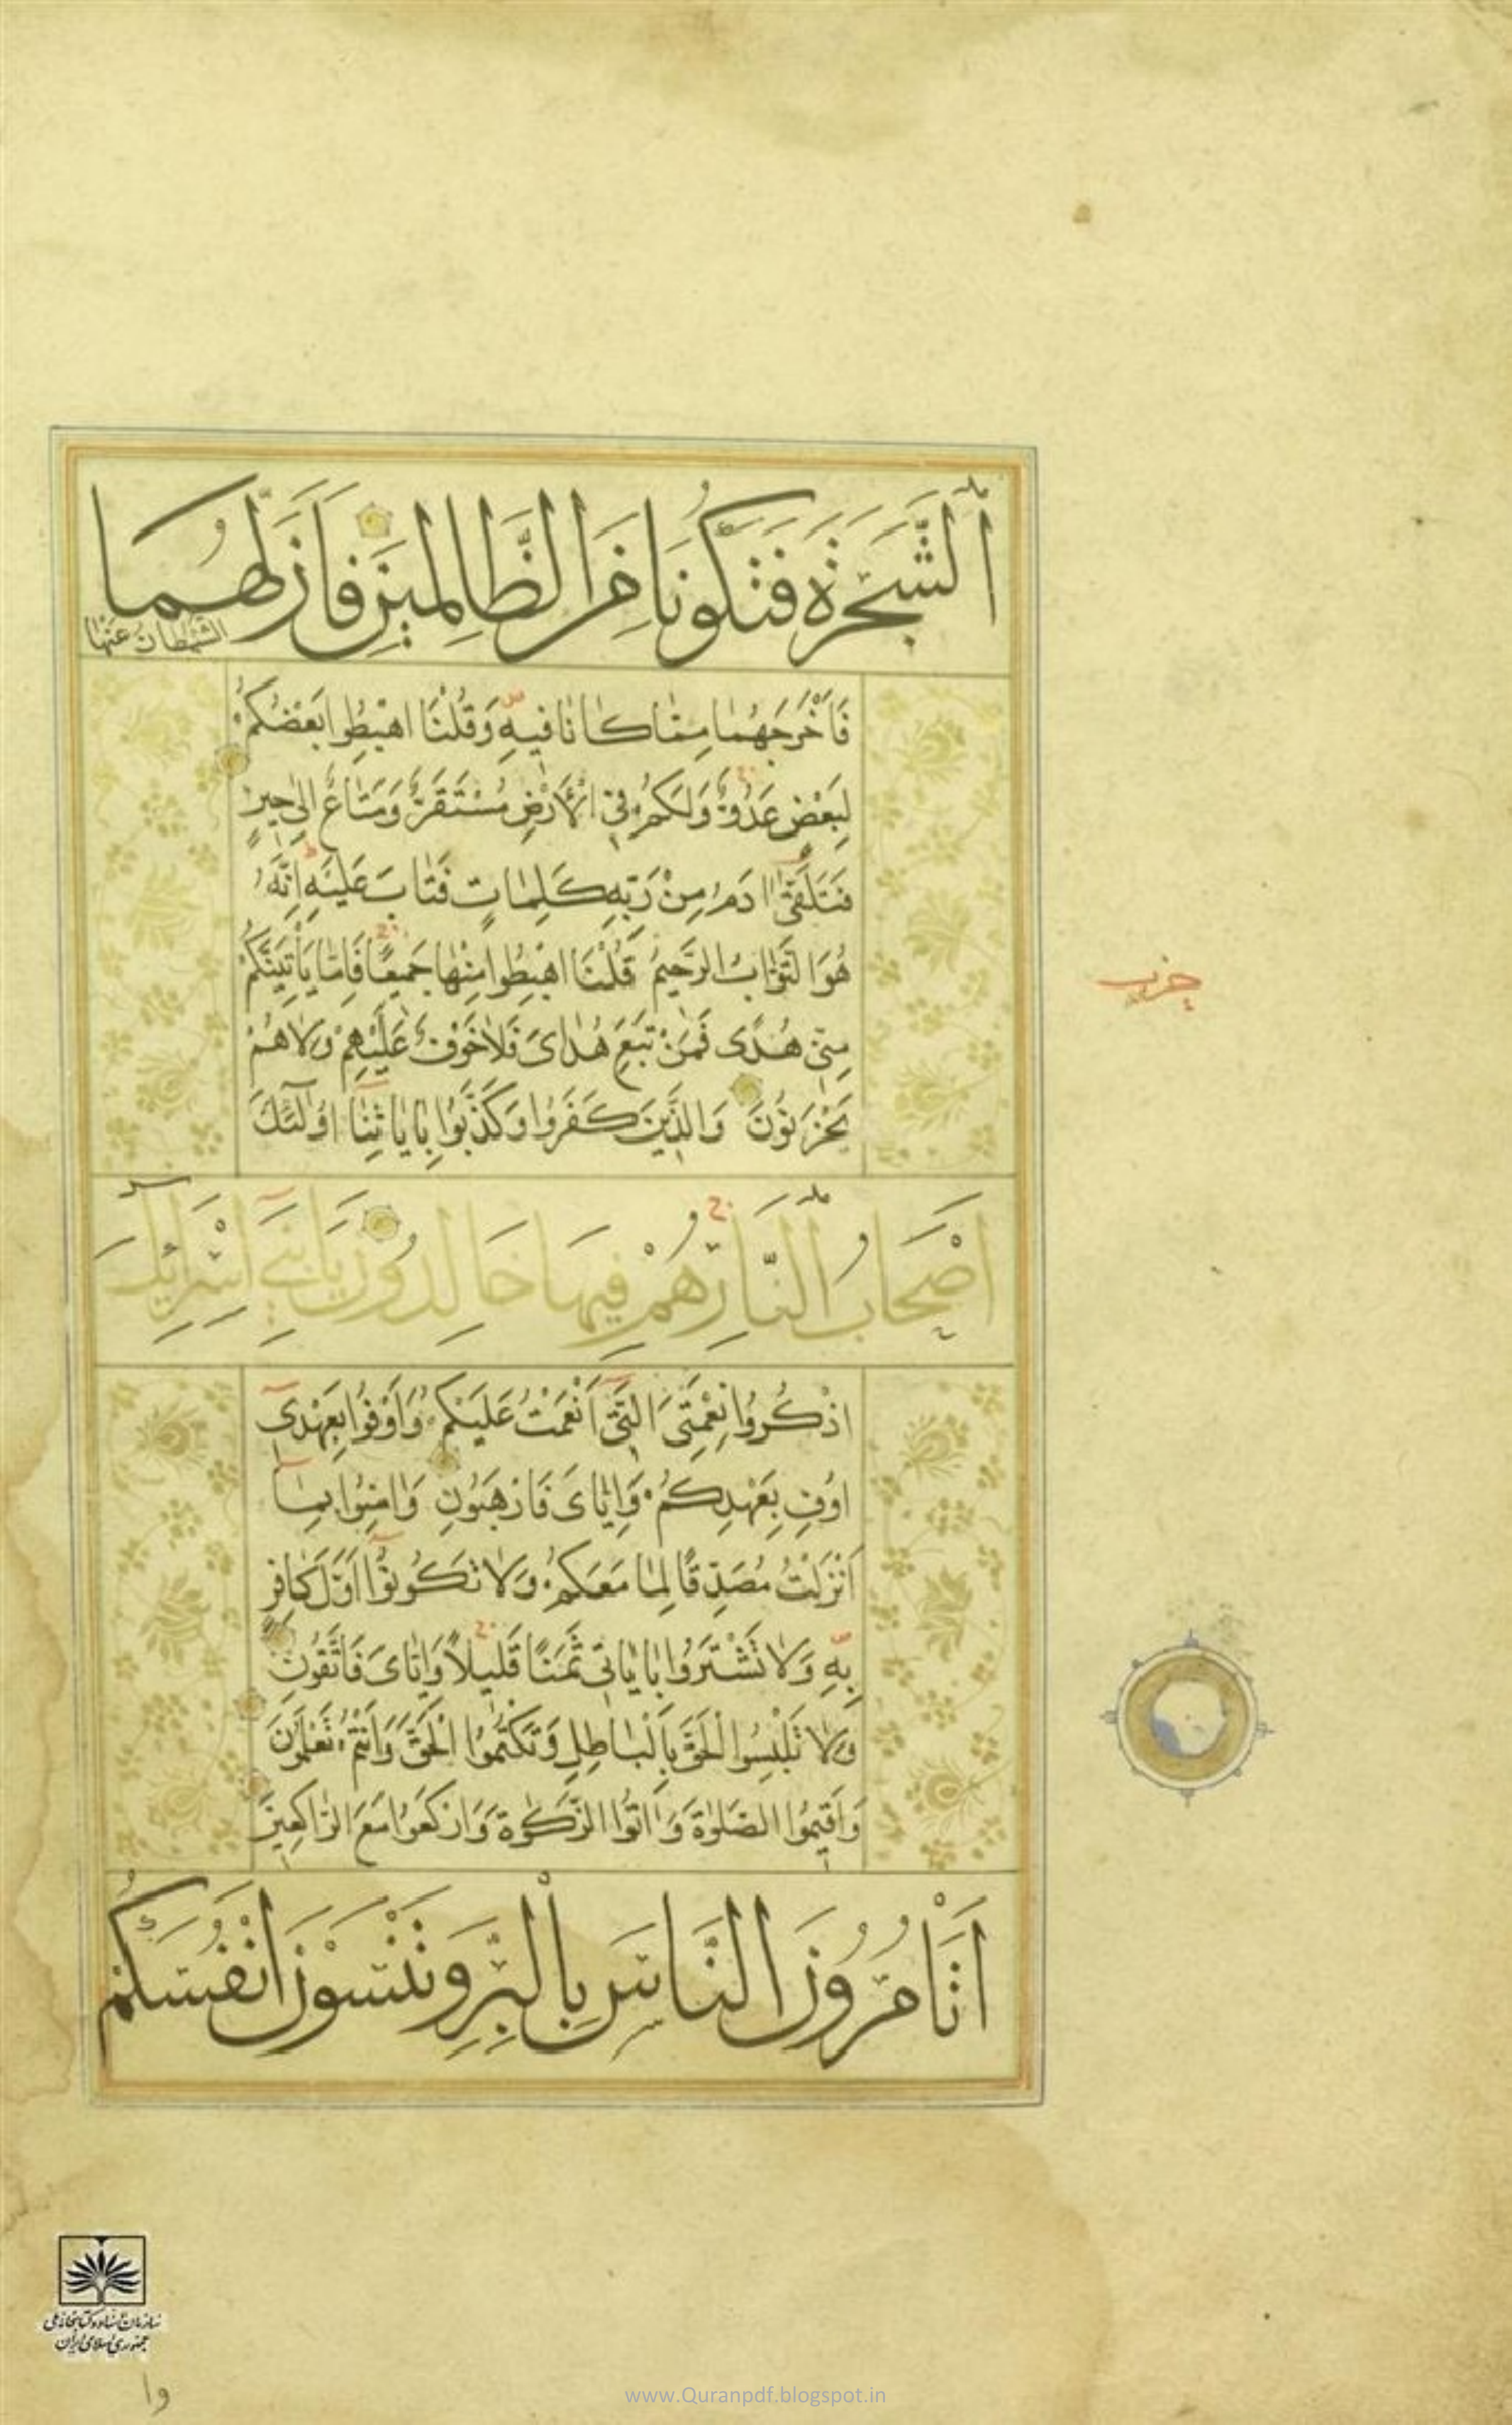 اَلشَّجَرَةَ فَتَكُونَا مِنَ الظَّالِمِينَ فَاَزَلَّهُمَا
الشَّيْطَانُ عَنْهَا
فَاَخْرَجَهُمَا مِمَّا كَانَا فِيهِ وَقُلْنَا اهْبِطُوا بَعْضُكُمْ
لِبَعْضٍ عَدُوٌّ وَلَكُمْ فِي الْاَرْضِ مُسْتَقَرٌّ وَمَتَاعٌ اِلٰى حِينٍ
فَتَلَقّٰى اٰدَمُ مِنْ رَبِّهِ كَلِمَاتٍ فَتَابَ عَلَيْهِ اِنَّهُ
هُوَ التَّوَّابُ الرَّحِيمُ قُلْنَا اهْبِطُوا مِنْهَا جَمِيعًا فَاِمَّا يَأْتِيَنَّكُمْ
مِنّي هُدًى فَمَنْ تَبِعَ هُدَايَ فَلَا خَوْفٌ عَلَيْهِمْ وَلَا هُمْ
يَحْزَنُونَ وَالَّذِينَ كَفَرُوا وَكَذَّبُوا بِاٰيَاتِنَا اُولٰئِكَ
اَصْحَابُ النَّارِ هُمْ فِيهَا خَالِدُونَ يَا بَنِي اِسْرَائِيلَ
اذْكُرُوا نِعْمَتِيَ الَّتِي اَنْعَمْتُ عَلَيْكُمْ وَاَوْفُوا بِعَهْدِي
اُوفِ بِعَهْدِكُمْ وَاِيَّايَ فَارْهَبُونِ وَاٰمِنُوا بِمَا
اَنْزَلْتُ مُصَدِّقًا لِمَا مَعَكُمْ وَلَا تَكُونُوا اَوَّلَ كَافِرٍ
بِهِ وَلَا تَشْتَرُوا بِاٰيَاتِي ثَمَنًا قَلِيلًا وَاِيَّايَ فَاتَّقُونِ
وَلَا تَلْبِسُوا الْحَقَّ بِالْبَاطِلِ وَتَكْتُمُوا الْحَقَّ وَاَنْتُمْ تَعْلَمُونَ
وَاَقِيمُوا الصَّلٰوةَ وَاٰتُوا الزَّكٰوةَ وَارْكَعُوا مَعَ الرَّاكِعِينَ
اَتَأْمُرُونَ النَّاسَ بِالْبِرِّ وَتَنْسَوْنَ اَنْفُسَكُمْ
حزب
سازمان اسناد و کتابخانه ملی
جمهوری اسلامی ایران
وا
www.Quranpdf.blogspot.in